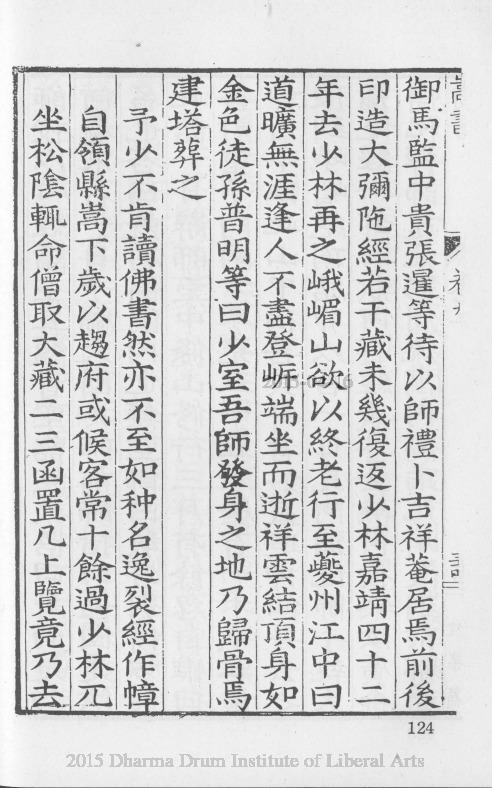 嵩書
卷九
御馬監中貴張暹等待以師禮卜吉祥菴居焉前後
印造大彌陁經若干藏未幾復返少林嘉靖四十二
年去少林再之峨嵋山欲以終老行至夔州江中曰
道曠無涯逢人不盡登㟁端坐而逝祥雲結頂身如
金色徒孫普明等曰少室吾師發身之地乃歸骨焉
建塔葬之
予少不肯讀佛書然亦不至如种名逸裂經作幃
自領縣嵩下歲以趨府或候客常十餘過少林兀
坐松陰輒命僧取大藏二三函置几上覽竟乃去
124
2015 Dharma Drum Institute of Liberal Arts